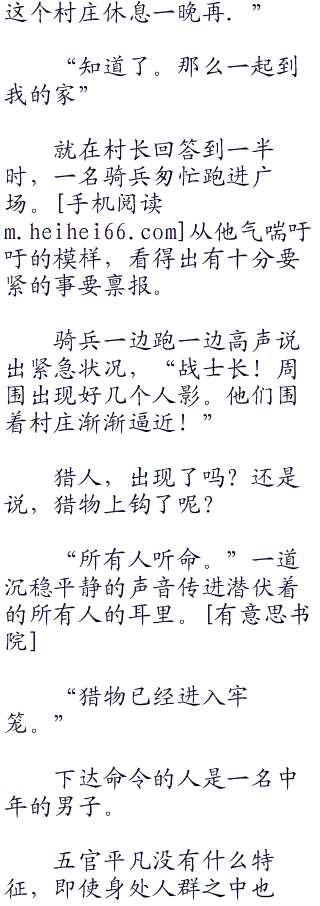 这个村庄休息一晚再．”
“知道了。那么一起到
我的家”
就在村长回答到一半
时，一名骑兵匆忙跑进广
场。[手机阅读
m.heihei66.com]从他气喘吁
吁的模样，看得出有十分要
紧的事要禀报。
骑兵一边跑一边高声说
出紧急状况，“战士长！周
围出现好几个人影。他们围
着村庄渐渐逼近！”
猎人，出现了吗？还是
说，猎物上钩了呢？
“所有人听命。”一道
沉稳平静的声音传进潜伏着
的所有人的耳里。[有意思书
院]
“猎物已经进入牢
笼。”
下达命令的人是一名中
年的男子。
五官平凡没有什么特
征，即使身处人群之中也